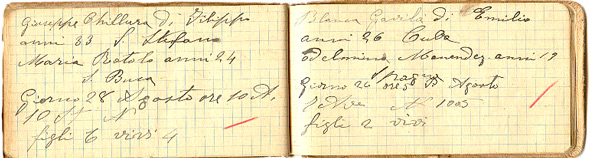 Giuseppe Chillura di Filippo
anni 33 S. Stefano
Maria Rotolo anni 24
S. Buca
Giorno 28 Agosto ore 10 A.
10 St N
figli 6 vivi 4
Blanca Gavila di Emilio
anni 26 Cuba
Adelmina Menendez anni 19
Spagna
Giorno 26 ore 5 Agosto
N 1005
figli 2 vivi